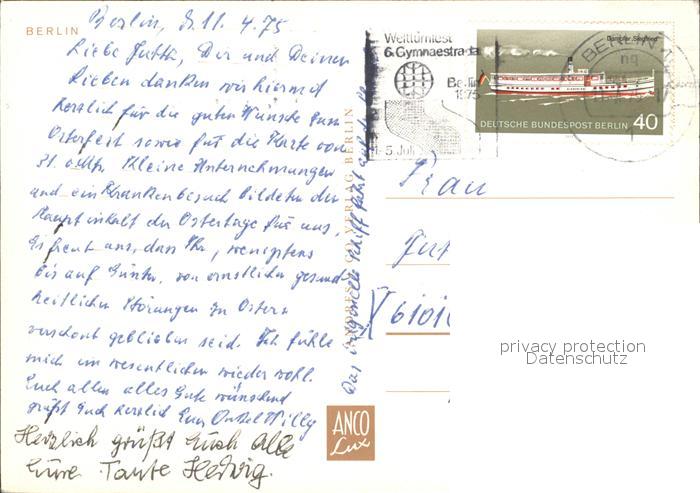 BERLIN
Berlin, d. 11. 4. 75
Liebe Jutta, Dir und Deinen
Lieben danken wir hiermit
herzlich für die guten Wünsche zum
Osterfest sowie für die Karte vom
31. Kleine Unternehmungen
und ein Krankenbesuch bildeten den
Hauptinhalt der Ostertage für uns.
Es freut uns, dass Ihr, wenigstens
bis auf Günter, von ernstlichen gesund-
heitlichen Störungen zu Ostern
verschont geblieben seid. Ich fühle
mich im wesentlichen wieder wohl.
Euch allen alles Gute wünschend
grüßt Euch herzlich Euer Onkel Willy
Herzlich grüßt Euch alle
Eure Tante Hedwig.
Das originelle Schiff fährt
VERLAG BERLIN
ANCO
Lux
Weltturnfest
6. Gymnaestrada
Berlin
1975
1.-5. Juli
Dampfer „Siegfried"
DEUTSCHE BUNDESPOST BERLIN 40
BERLIN
ng
Frau
Jut
6101
privacy protection
Datenschutz